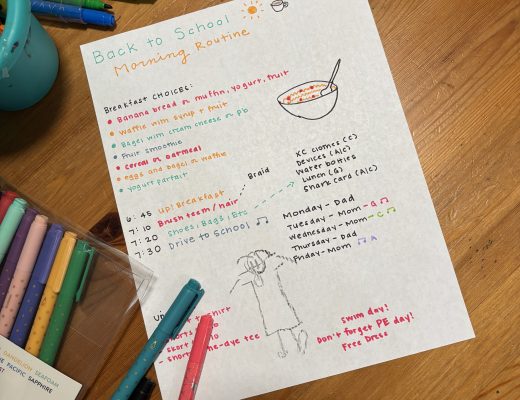 Back to School
Morning Routine
Breakfast CHOICES:
Banana bread or muffin, yogurt, fruit
waffle with syrup + fruit
Bagel with cream cheese or pb
Fruit smoothie
cereal or oatmeal
eggs and bagel or waffle
yogurt parfait
Braid
XC clothes (C)
Devices (A|C)
Water bottles
Lunch (G)
Shark card (A|C)
6:45 Up! Breakfast
7:10 Brush teeth / hair
7:20 Shoes, Bags, Etc
7:30 Drive to School
Monday - Dad
Tuesday - Mom - G
Wednesday - Mom - C
Thursday - Dad
Friday - Mom A
swim day!
Don't forget PE day!
Free Dress
DANDELION SEAFOAM
PACIFIC SAPPHIRE